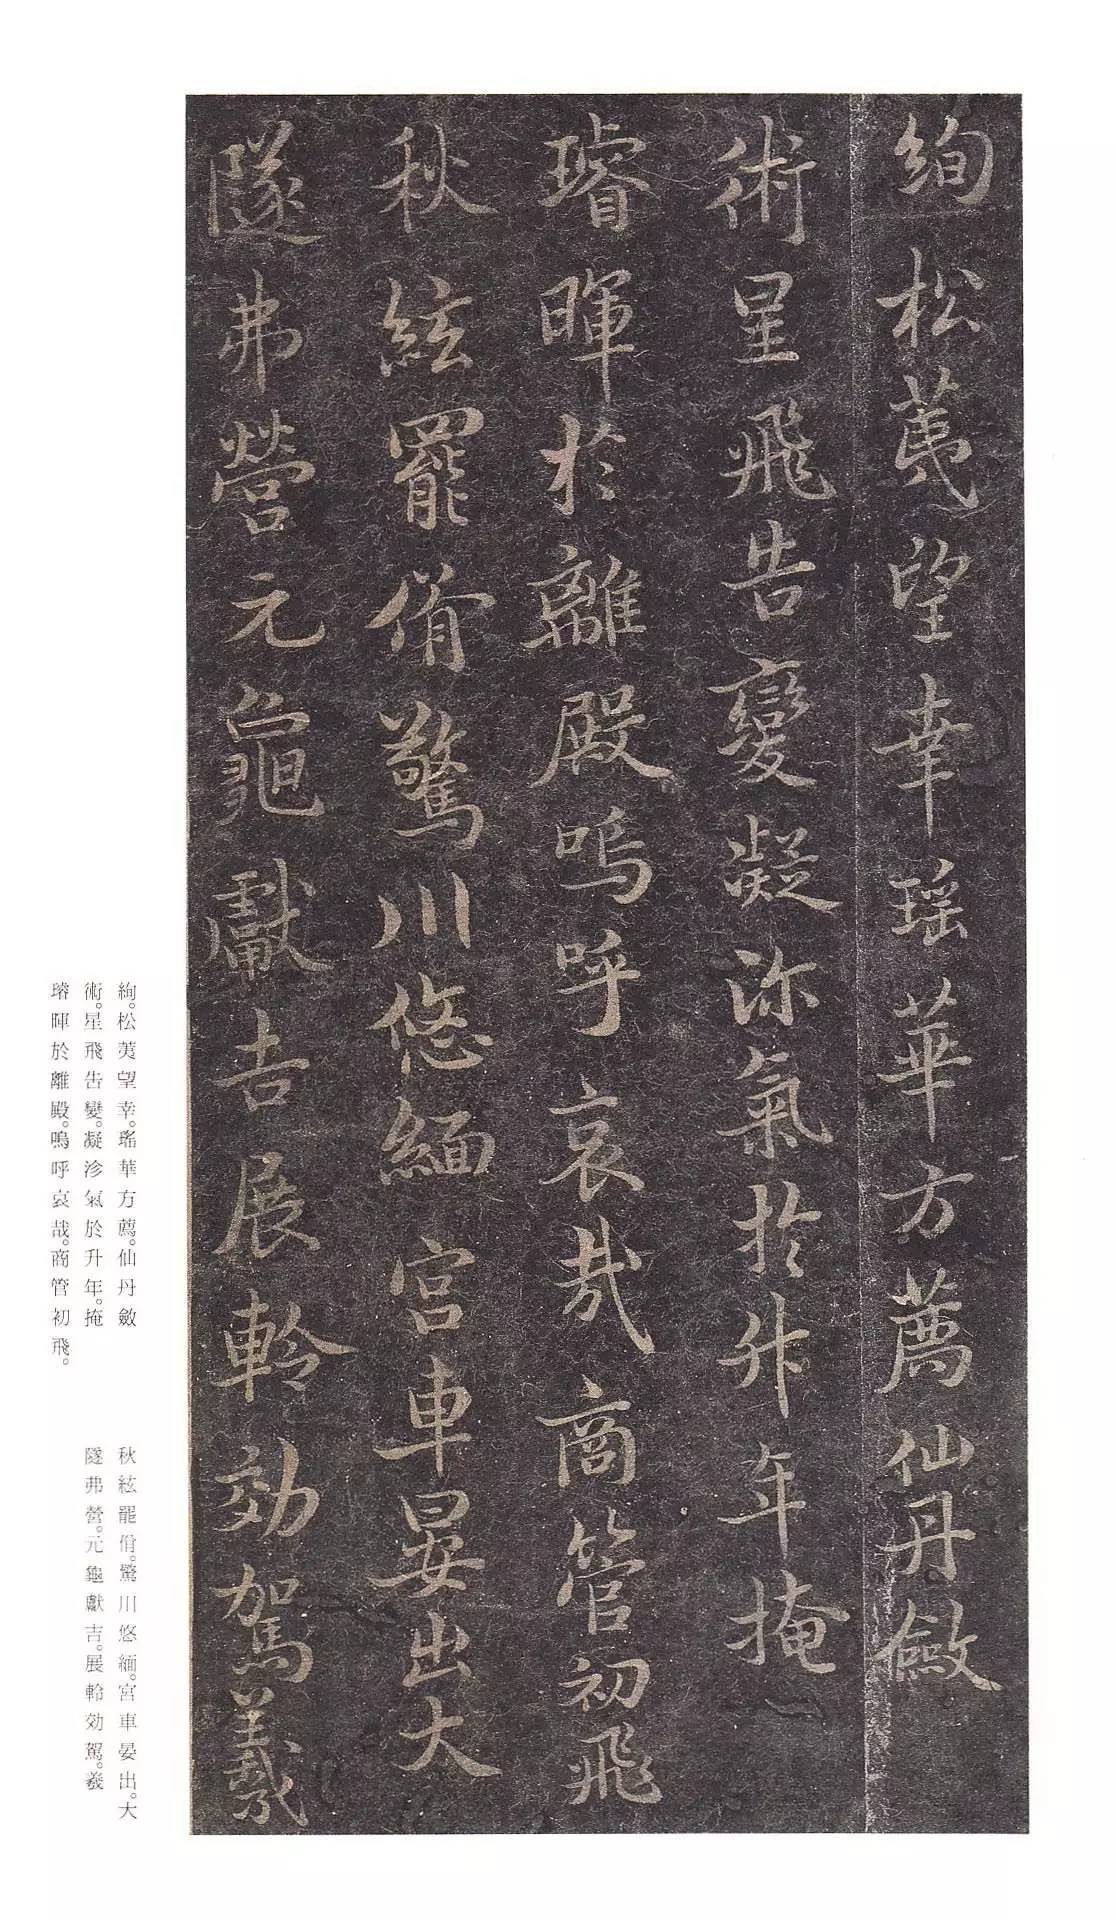 絢松荑望幸瑤華方薦仙丹斂
術星飛告變凝沴氣於升年掩
璿暉於離殿嗚呼哀哉商管初飛
秋絃罷佾驚川悠緬宮車晏出大
隧弗營元龜獻吉展軨効駕羲
絢。松荑望幸。瑤華方薦。仙丹斂
術。星飛告變。凝沴氣於升年。掩
璿暉於離殿。嗚呼哀哉。商管初飛。
秋絃罷佾。驚川悠緬。宮車晏出。大
隧弗營。元龜獻吉。展軨効駕。羲